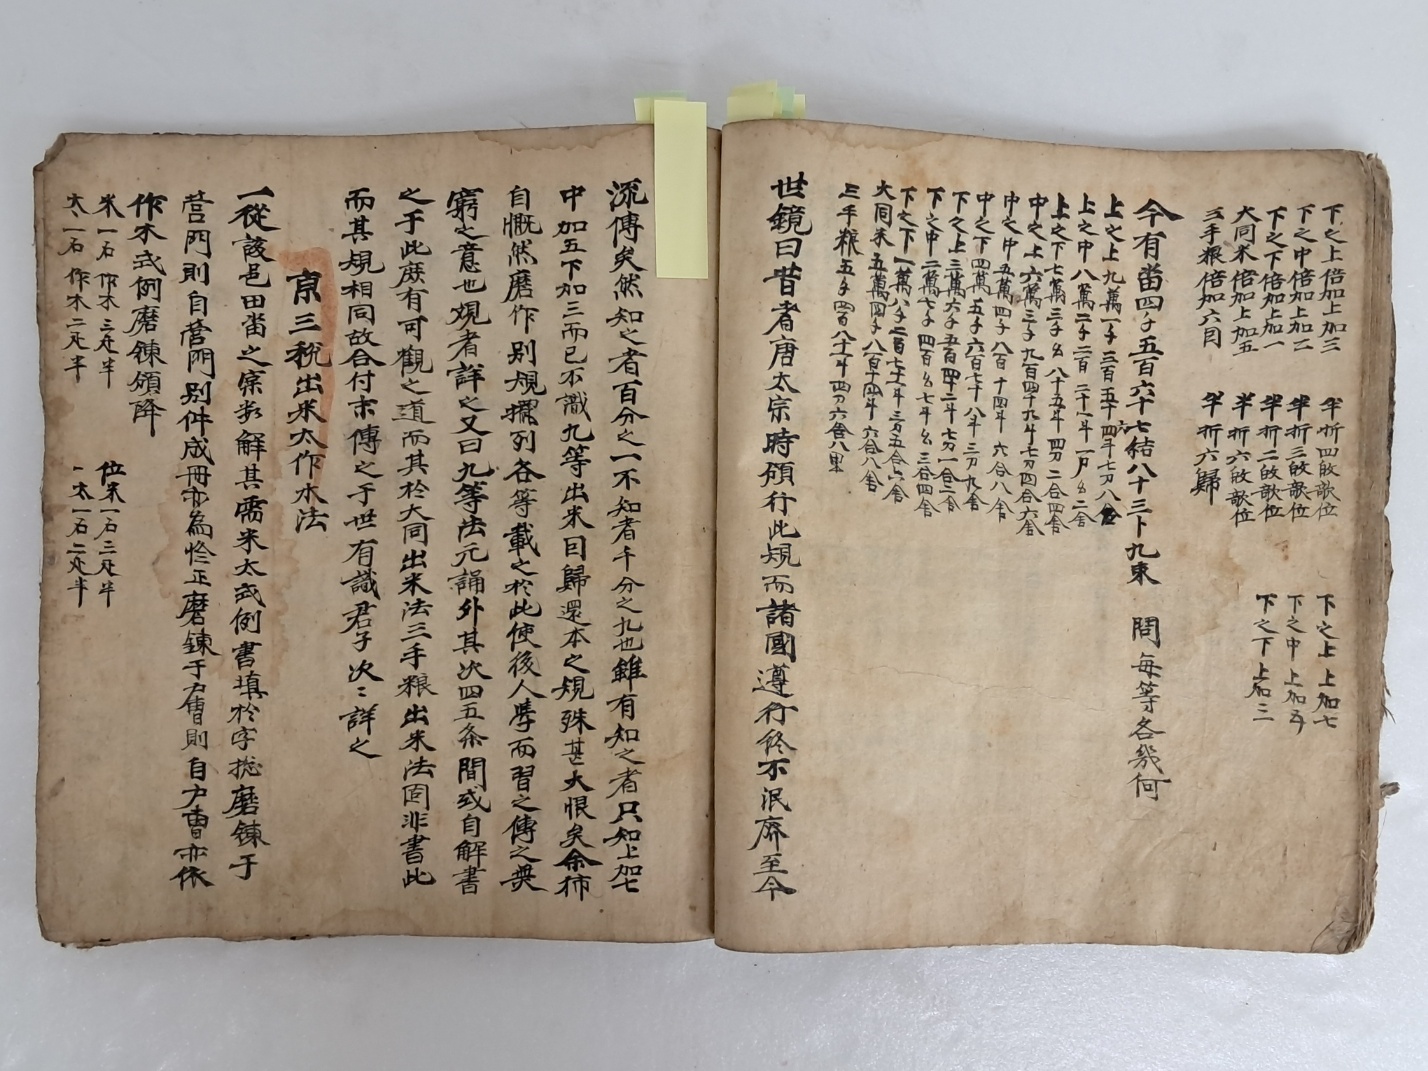 下之上倍加上加三　半折四啟歌位　下之上 上加七
下之中倍加上加二　半折三啟歌位　下之中 上加五
下之下倍加上加一　半折二啟歌位　下之下 上加三
大同米倍加上加五　半折六啟歌位
三手粮倍加六因　半折六歸
今有畓四千五百六十七結八十三卜九束　問每等各幾何
上之上九萬一千三百五十四斗七刀八舍
上之中八萬二千二百二十一斗一刀舍
上之下七萬三千八十五斗四刀二合四舍
中之上六萬三千九百四十九斗七刀四合六舍
中之中五萬四千八百十四斗六合八舍
中之下四萬五千六百七十八斗三刀九舍
下之上三萬六千五百四十二斗七刀一合二舍
下之中二萬七千四百七斗三合四舍
下之下一萬八千二百七十一斗三刀五合六舍
大同米五萬四千八百十四斗六合八舍
三手粮五千四百八十一斗四刀六舍八里
世鏡曰昔者唐太宗時頒行此規而諸國遵行終不泯廢至今
流傳矣然知之者百分之一不知者千分之九也雖有知之者只知上加七
中加五下加三而已不識九等出米因歸還本之規殊甚大恨矣余柿
自慨然磨作別規擺列各等載之於此使後人學而習之傳之無
窮之意也观者詳之又曰九等法元誦外其次四五条間或自解書
之于此庶有可觀之道而其於大同出米法三手粮出米法固非書此
而其規相同故合付末傳之于世有識君子次〻詳之
京三稅出米太作木法
一從該邑田畓之案數解其需米太式例書填於字摠磨鍊于
營門則自營門別件成冊亦為恰正磨鍊于户曹則自户曹亦依
作木式例磨鍊頒降
米一石 作木三疋半　位米一石三疋半
太一石 作木二疋半　太一石二疋半